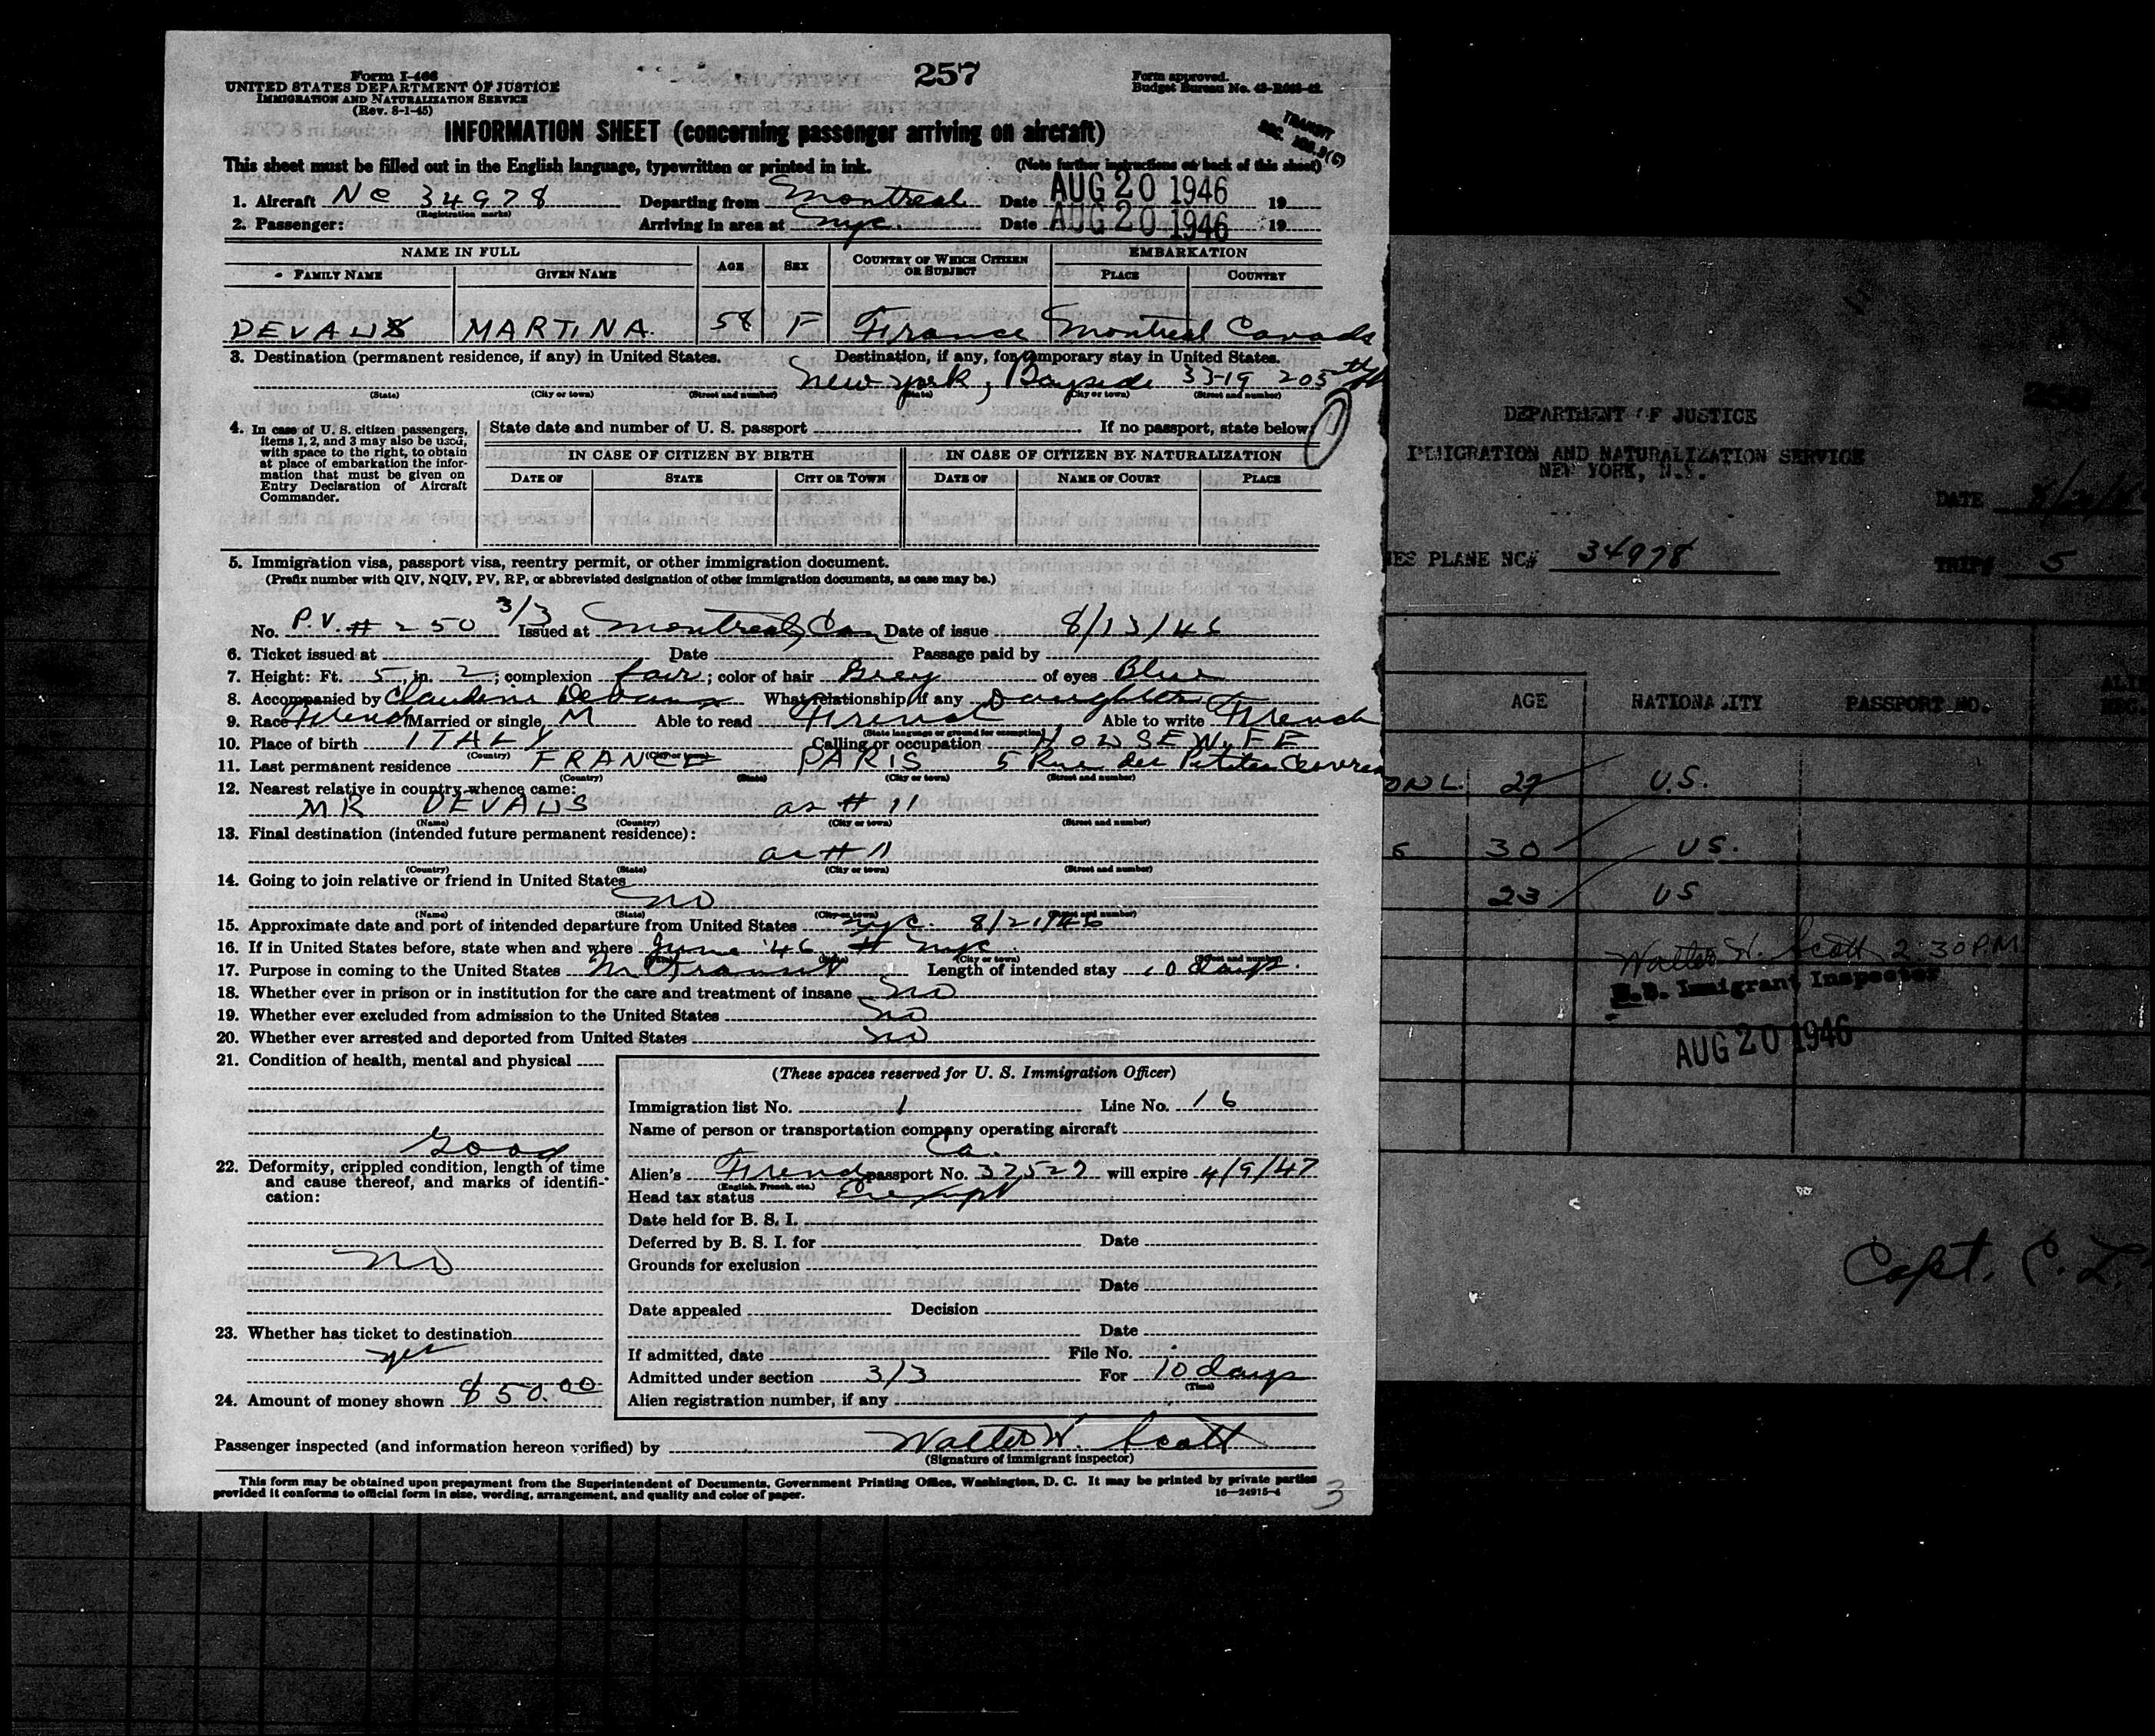 Form I-466
UNITED STATES DEPARTMENT OF JUSTICE
IMMIGRATION AND NATURALIZATION SERVICE
(Rev. 8-1-45)
257
Form approved.
Budget Bureau No. 43-R083-42.
INFORMATION SHEET (concerning passenger arriving on aircraft)
TRANSIT
SEC.
This sheet must be filled out in the English language, typewritten or printed in ink. (Note further instructions on back of this sheet)
1. Aircraft NC 34978 Departing from Montreal Date AUG 20 1946 19
(Registration marks)
2. Passenger: Arriving in area at nyc. Date AUG 20 1946 19
NAME IN FULL AGE SEX COUNTRY OF WHICH CITIZEN OR SUBJECT EMBARKATION
FAMILY NAME GIVEN NAME PLACE COUNTRY
DEVAUS MARTINA. 58 F France Montreal Canada
3. Destination (permanent residence, if any) in United States. Destination, if any, for temporary stay in United States.
New York, Bayside 33-19 205th
(State) (City or town) (Street and number) (State) (City or town) (Street and number)
4. In case of U. S. citizen passengers, items 1, 2, and 3 may also be used, with space to the right, to obtain at place of embarkation the information that must be given on Entry Declaration of Aircraft Commander.
State date and number of U. S. passport If no passport, state below:
IN CASE OF CITIZEN BY BIRTH IN CASE OF CITIZEN BY NATURALIZATION
DATE OF STATE CITY OR TOWN DATE OF NAME OF COURT PLACE
5. Immigration visa, passport visa, reentry permit, or other immigration document.
(Prefix number with QIV, NQIV, PV, RP, or abbreviated designation of other immigration documents, as case may be.)
No. P.V. # 250 3/3 Issued at Montreal, Can Date of issue 8/13/46
6. Ticket issued at Date Passage paid by
7. Height: Ft. 5, in. 2; complexion fair; color of hair Grey of eyes Blue
8. Accompanied by Claudine Devaus What relationship, if any Daughter
9. Race French Married or single M Able to read French Able to write French
(State language or ground for exemption)
10. Place of birth ITALY Calling or occupation HOUSEWIFE
(Country) (City or town)
11. Last permanent residence FRANCE PARIS 5 Rue des Petites
(Country) (State) (City or town) (Street and number)
12. Nearest relative in country whence came:
MR DEVAUS as # 11
(Name) (Country) (City or town) (Street and number)
13. Final destination (intended future permanent residence):
as # 11
(Country) (State) (City or town) (Street and number)
14. Going to join relative or friend in United States no
(Name) (State) (City or town) (Street and number)
15. Approximate date and port of intended departure from United States nyc. 8/21/46
16. If in United States before, state when and where June '46 nyc.
17. Purpose in coming to the United States In Transit Length of intended stay 10 days.
18. Whether ever in prison or in institution for the care and treatment of insane no
19. Whether ever excluded from admission to the United States no
20. Whether ever arrested and deported from United States no
21. Condition of health, mental and physical
Good
22. Deformity, crippled condition, length of time and cause thereof, and marks of identification:
no
23. Whether has ticket to destination
yes
24. Amount of money shown $50.00
(These spaces reserved for U. S. Immigration Officer)
Immigration list No. 1 Line No. 16
Name of person or transportation company operating aircraft
Ca.
Alien's French passport No. 37529 will expire 4/9/47
(English, French, etc.)
Head tax status Exempt
Date held for B. S. I.
Deferred by B. S. I. for Date
Grounds for exclusion
Date
Date appealed Decision
Date
If admitted, date File No.
Admitted under section 3/3 For 10 days
(Time)
Alien registration number, if any
Passenger inspected (and information hereon verified) by Walter W. Scott
(Signature of immigrant inspector)
This form may be obtained upon prepayment from the Superintendent of Documents, Government Printing Office, Washington, D. C. It may be printed by private parties
provided it conforms to official form in size, wording, arrangement, and quality and color of paper. 16—24915-4
3
DEPARTMENT OF JUSTICE
IMMIGRATION AND NATURALIZATION SERVICE
NEW YORK, N.Y.
DATE
PLANE NC# 34978 TRIP# 5
AGE NATIONALITY PASSPORT NO.
27 U.S.
30 US.
23 US
Walter W. Scott 2:30PM
U.S. Immigrant Inspector
AUG 20 1946
Capt. C. L.